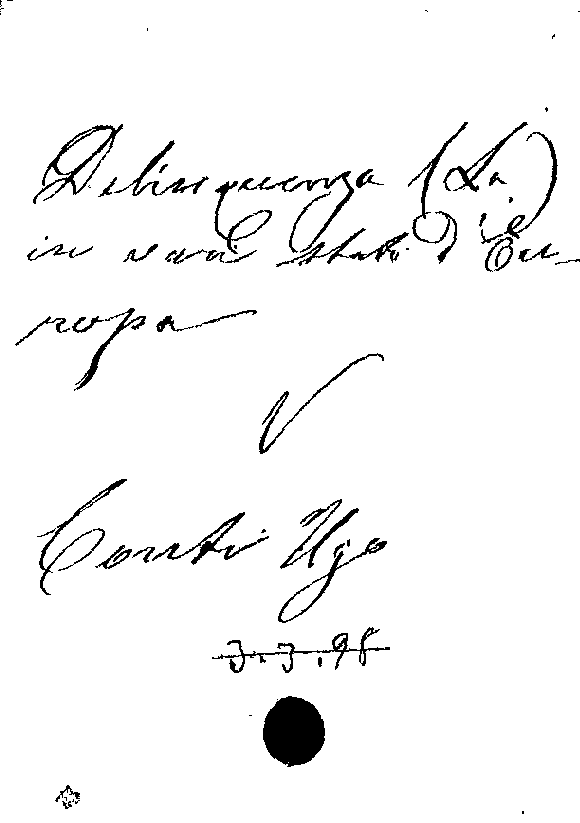 Delinquenza (La)
in varii Stati d'Eu-
ropa
V
Conti Ugo
J. J. 98